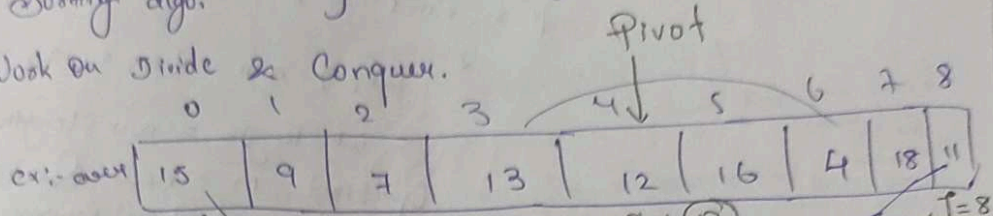 algo.
Pivot
Work on Divide & Conquer.
0 1 2 3 4 5 6 7 8
ex:- arr 15 9 7 13 12 16 4 18 11
J=8